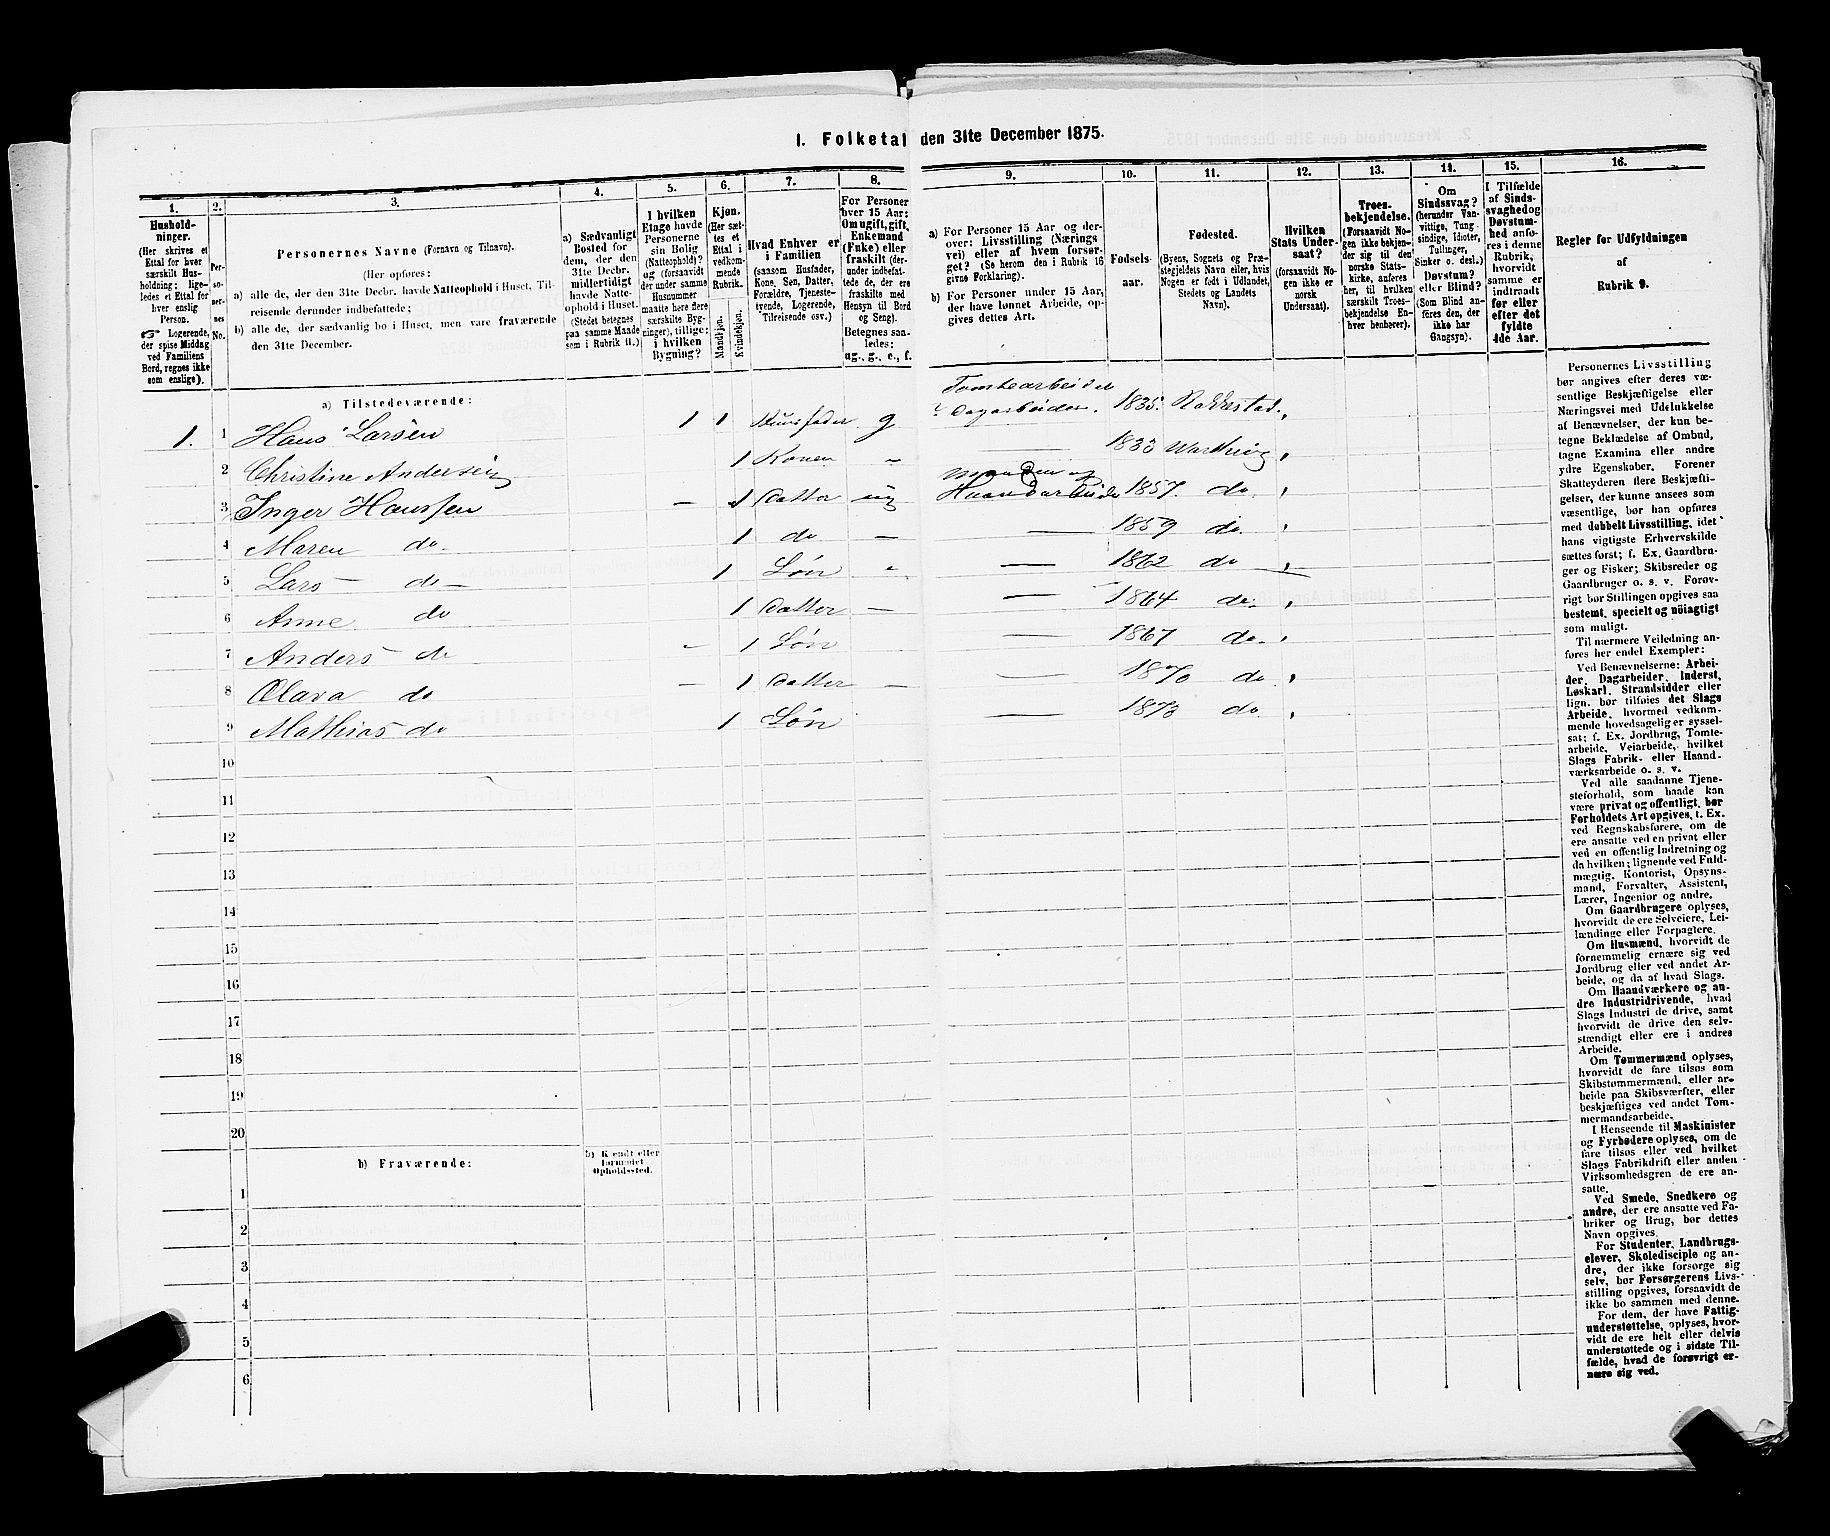 1. Folketal den 31te December 1875.
1. 2. 3. 4. 5. 6. 7. 8. 9. 10. 11. 12. 13. 14. 15. 16.
Hushold-
ninger.
(Her skrives et
Ettal for hver
særskilt Hus-
holdning; lige-
ledes et Ettal for
hver enslig
Person.
☞ Logerende,
der spise Middag
ved Familiens
Bord, regnes ikke
som enslige).
Per-
so-
ner-
nes
No.
Personernes Navne (Fornavn og Tilnavn).
(Her opføres:
a) alle de, der den 31te Decbr. havde Natteophold i Huset, Til-
reisende derunder indbefattede;
b) alle de, der sædvanlig bo i Huset, men vare fraværende
den 31te December.
a) Sædvanligt
Bosted for
dem, der den
31te Decbr.
midlertidigt
havde Natte-
ophold i Huset.
(Stedet betegnes
paa samme Maade
som i Rubrik 11.)
I hvilken
Etage havde
Personerne
sin Bolig
(Natteophold)?
og (forsaavidt
der under samme
Husnummer
maatte høre flere
særskilte Byg-
ninger), tillige:
i hvilken
Bygning?
Kjøn.
(Her sæt-
tes et
Ettal i
vedkom-
mende
Rubrik.
Mandkjøn.
Kvindekjøn.
Hvad Enhver er
i Familien
(saasom Husfader,
Kone, Søn, Datter,
Forældre, Tjeneste-
tyende, Logerende,
Tilreisende osv.)
For Personer
over 15 Aar:
Om ugift, gift,
Enkemand
(Enke) eller
fraskilt (der-
under indbefat-
tede de, der ere
fraskilte med
Hensyn til Bord
og Seng).
Betegnes saa-
ledes:
ug., g., e., f.
a) For Personer 15 Aar og der-
over: Livsstilling (Nærings
vei) eller af hvem forsør-
get? (Se herom den i Rubrik 16
givne Forklaring).
b) For Personer under 15 Aar,
der have lønnet Arbeide, op-
gives dettes Art.
Fødsels-
aar.
Fødested.
(Byens, Sognets og Præ-
stegjeldets Navn eller, hvis
Nogen er født i Udlandet,
Stedets og Landets
Navn).
Hvilken
Stats Under-
saat?
(forsaavidt No-
gen ikke er
norsk
Undersaat).
Troes-
bekjendelse.
(Forsaavidt No-
gen ikke bekjen-
der sig til den
norske Stats-
kirke, anføres
her, til hvilken
særskilt Troes-
bekjendelse En-
hver henhører).
Om
Sindssvag?
(herunder Van-
vittige, Tung-
sindige, Idioter,
Tullinger,
Sinker o. desl.)
Døvstum?
eller Blind?
(Som Blind an-
føres den, der
ikke har
Gangsyn).
I Tilfælde
af Sinds-
svaghed og
Døvstum-
hed anfø-
res i denne
Rubrik,
hvorvidt
samme er
indtraadt
før eller
efter det
fyldte
4de Aar.
Regler for Udfyldningen
af
Rubrik 9.
a) Tilstedeværende:
Tomtearbeider
1. 1 Hans Larsen 1 1 Huusfader g Dagarbeider. 1835. Rakkestad.
2 Christine Andersen 1 Konen – — 1833
3 Inger Hanssen – 1 Datter ug Haandarbeide 1857. do.
4 Maren do. 1 do – — 1859 do.
5 Lars – do – 1 Søn — 1862 do
6 Anne do 1 Datter – — 1864 do.
7 Anders do – 1 Søn — 1867 do.
8 Olava do – 1 Datter – — 1870 do.
9 Mathias do 1 Søn — 1873 do.
10
11
12
13
14
15
16
17
18
19
20
b) Fraværende:
b) Kjendt eller
formodet
Opholdssted.
1
2
3
4
5
6
Personernes Livsstilling
bør angives efter deres væ-
sentlige Beskjæftigelse eller
Næringsvei med Udelukkelse
af Benævnelser, der kun be-
tegne Beklædelse af Ombud,
tagne Examina eller andre
ydre Egenskaber. Forener
Skatteyderen flere Beskjæfti-
gelser, der kunne ansees som
væsentlige, bør han opføres
med dobbelt Livsstilling, idet
hans vigtigste Erhvervskilde
sættes først; f. Ex. Gaardbru-
ger og Fisker; Skibsreder og
Gaardbruger o. s. v. Forøv-
rigt bør Stillingen opgives saa
bestemt, specielt og nöiagtigt
som muligt.
Til nærmere Veiledning an-
føres her endel Exempler:
Ved Benævnelserne: Arbei-
der, Dagarbeider, Inderst,
Løskarl, Strandsidder eller
lign. bør tilføies det Slags
Arbeide, hvormed vedkom-
mende hovedsagelig er syssel-
sat; f. Ex. Jordbrug, Tomte-
arbeide, Veiarbeide, hvilket
Slags Fabrik- eller Haand-
værksarbeide o. s. v.
Ved alle saadanne Tjene-
steforhold, som baade kan
være privat og offentligt, bør
Forholdets Art opgives, t. Ex.
ved Regnskabsførere, om de
ere ansatte ved en privat eller
ved en offentlig Indretning og
da hvilken; lignende ved Fuld-
mægtig, Kontorist, Opsyns-
mand, Forvalter, Assistent,
Lærer, Ingeniør og andre.
Om Gaardbrugere oplyses,
hvorvidt de ere Selveiere, Lei-
lændinge eller Forpagtere.
Om Husmænd, hvorvidt de
fornemmelig ernære sig ved
Jordbrug eller ved andet Ar-
beide, og da af hvad Slags.
Om Haandværkere og an-
dre Industridrivende, hvad
Slags Industri de drive, samt
hvorvidt de drive den selv-
stændigt eller ere i andres
Arbeide.
Om Tømmermænd oplyses,
hvorvidt de fare tilsøs som
Skibstømmermænd, eller ar-
beide paa Skibsværfter, eller
beskjæftiges ved andet Tøm-
mermandsarbeide.
I Henseende til Maskinister
og Fyrbødere oplyses, om de
fare tilsøs eller ved hvilket
Slags Fabrikdrift eller anden
Virksomhedsgren de ere an-
satte.
Ved Smede, Snedkere og
andre, der ere ansatte ved Fa-
briker og Brug, bør dettes
Navn opgives.
For Studenter, Landbrugs-
elever, Skoledisciple og an-
dre, der ikke forsørge sig
selv, bør Forsørgerens Livs-
stilling opgives, forsaavidt de
ikke bo sammen med denne.
For dem, der have Fattig-
understøttelse, oplyses, hvor-
vidt de ere helt eller delvis
understøttede og i sidste Til-
fælde, hvad de forøvrigt er-
nære sig ved.